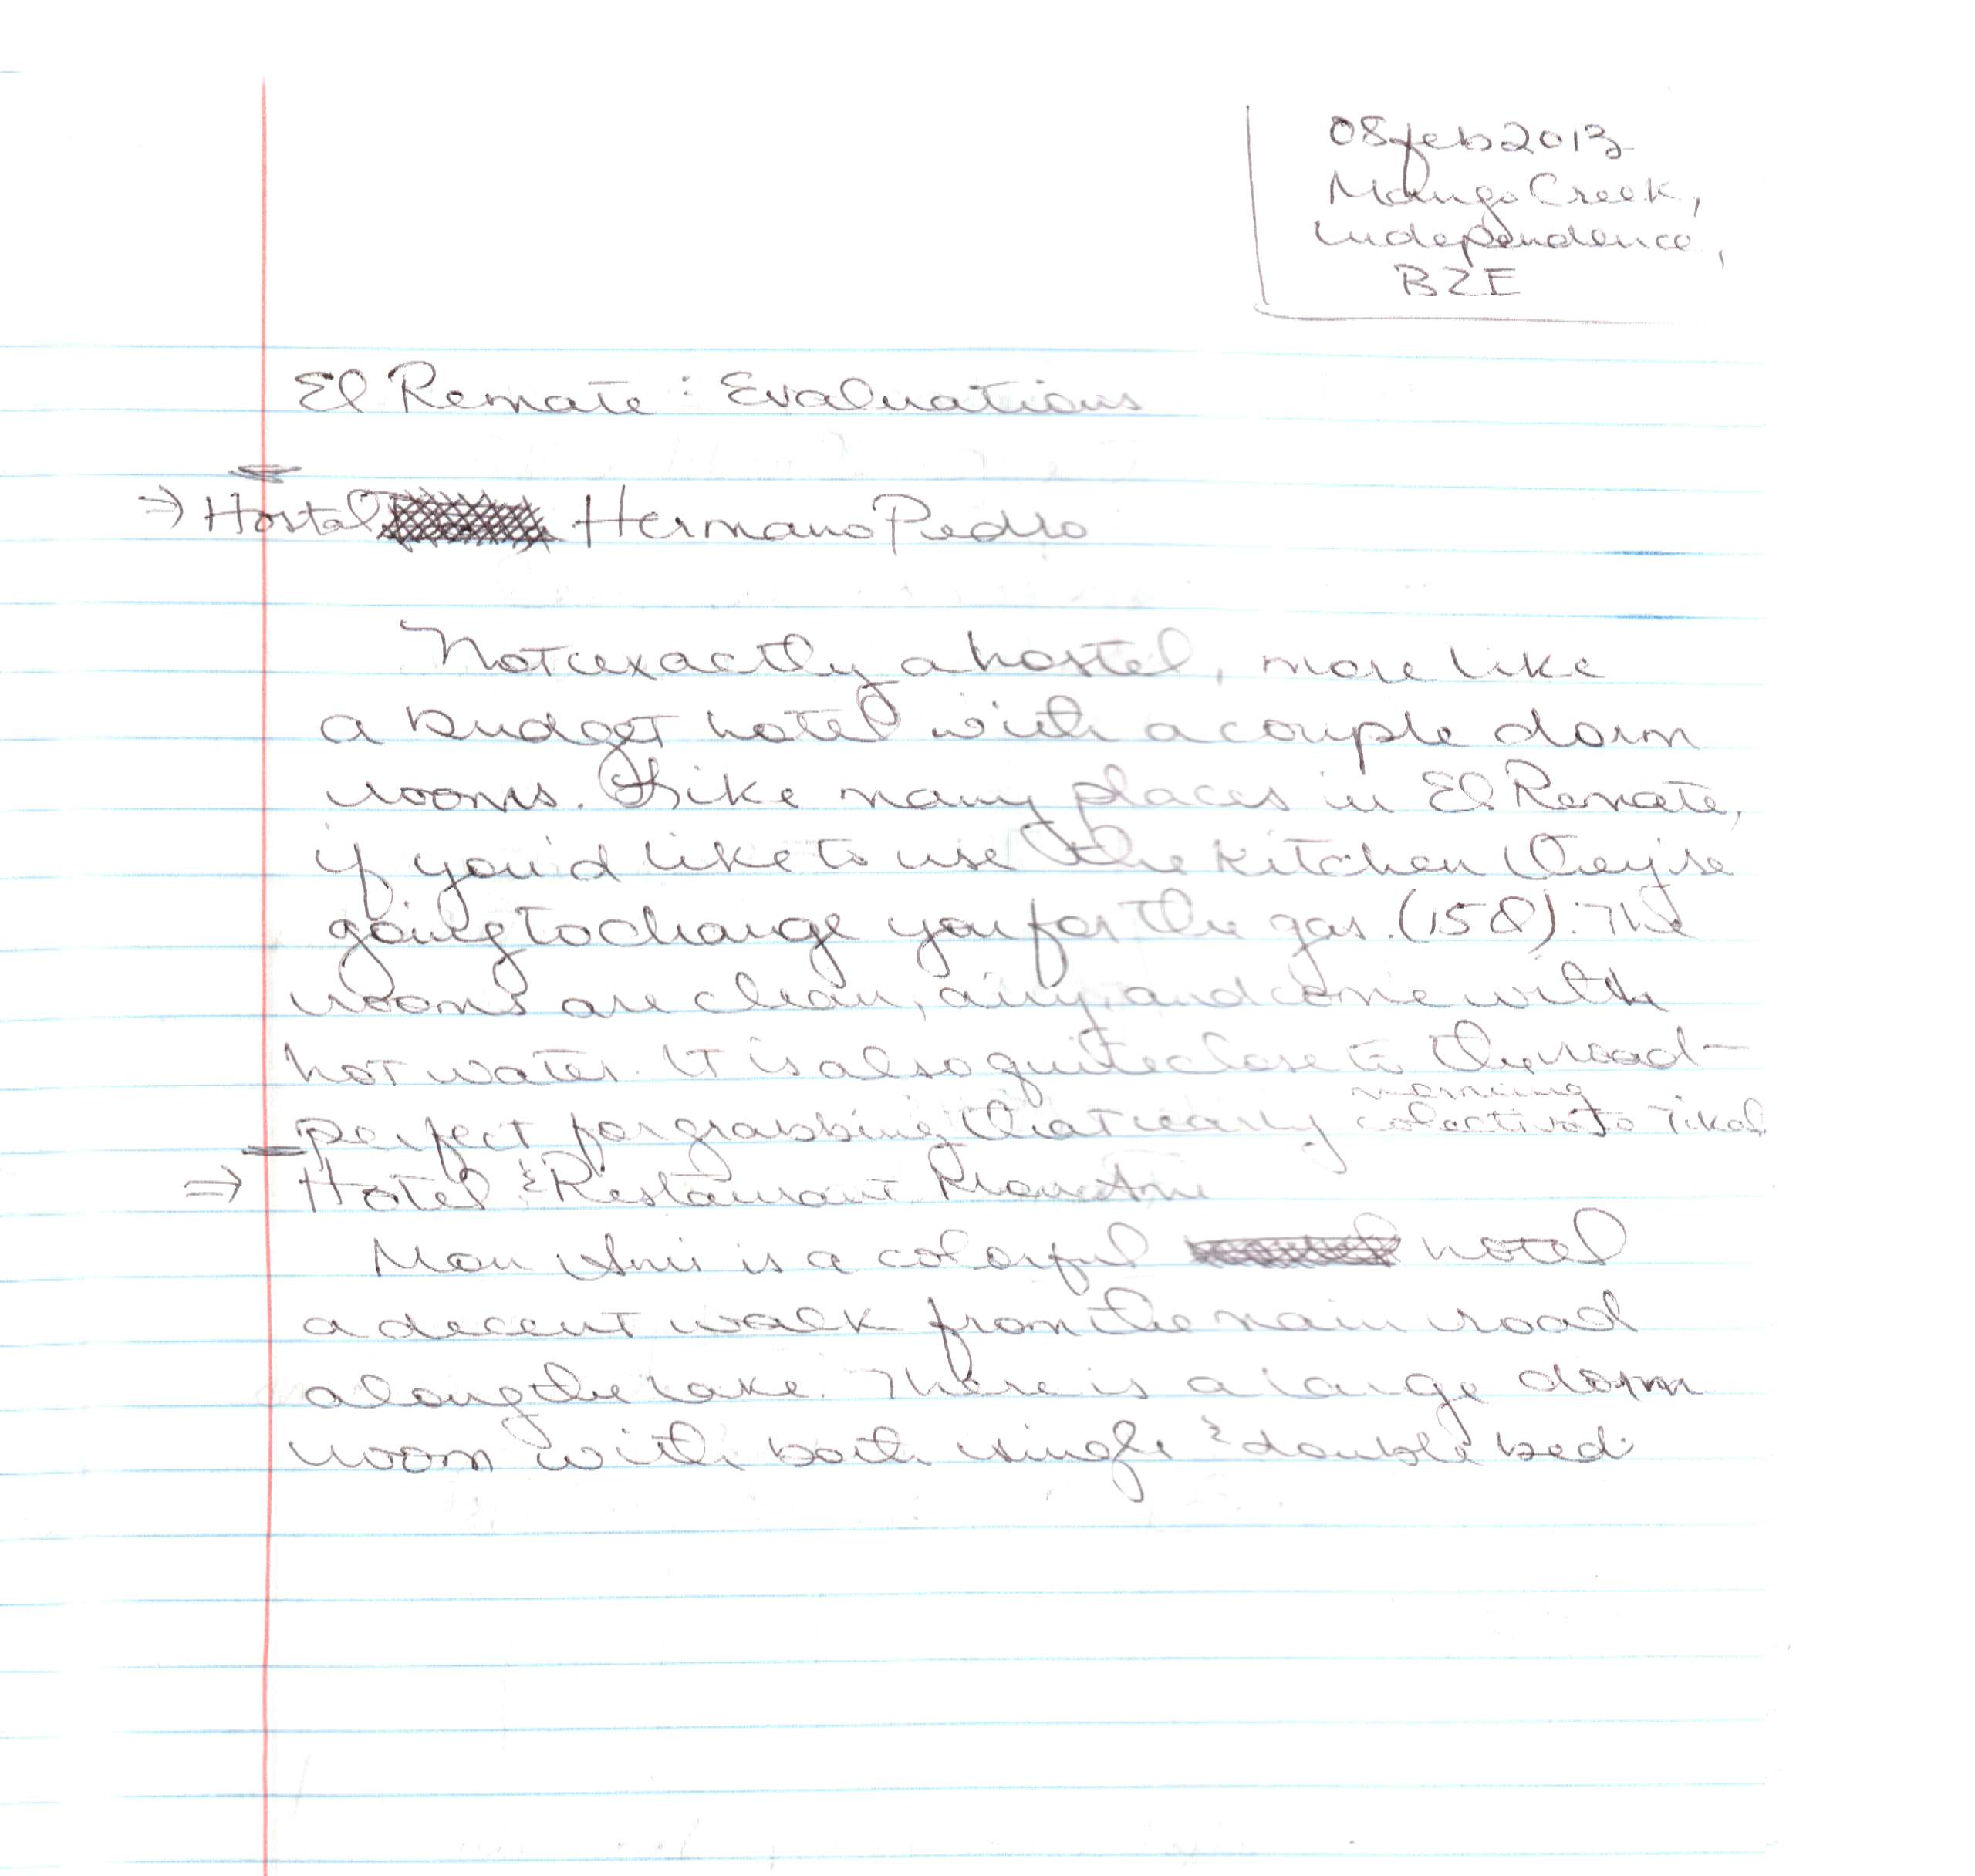 08feb2013
Mango Creek,
Independence,
BZE
El Remate : Evaluations
⇒ Hostal Hermano Pedro
Not exactly a hostel, more like
a budget hotel with a couple dorm
rooms. Like many places in El Remate,
if you'd like to use the kitchen they're
going to charge you for the gas. (15Q). The
rooms are clean, airy, and come with
hot water. It is also quite close to the road–
perfect for grabbing that early morning colectivo to Tikal.
⇒ Hotel & Restaurant Mon Ami
Mon Ami is a colorful hotel
a decent walk from the main road
along the lake. There is a large dorm
room with both single & double bed